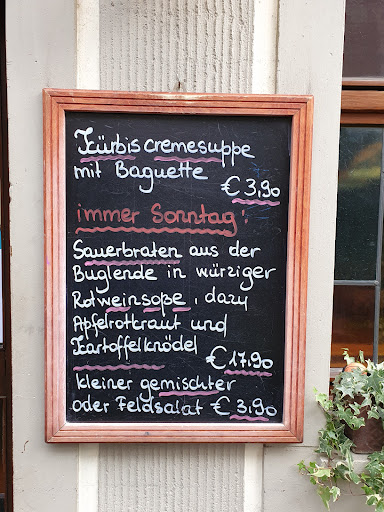 Kürbiscremesuppe
mit Baguette
€ 3,90
immer Sonntag:
Sauerbraten aus der
Buglende in würziger
Rotweinsoße, dazu
Apfelrotkraut und
Kartoffelknödel
€ 17,90
kleiner gemischter
oder Feldsalat € 3,90